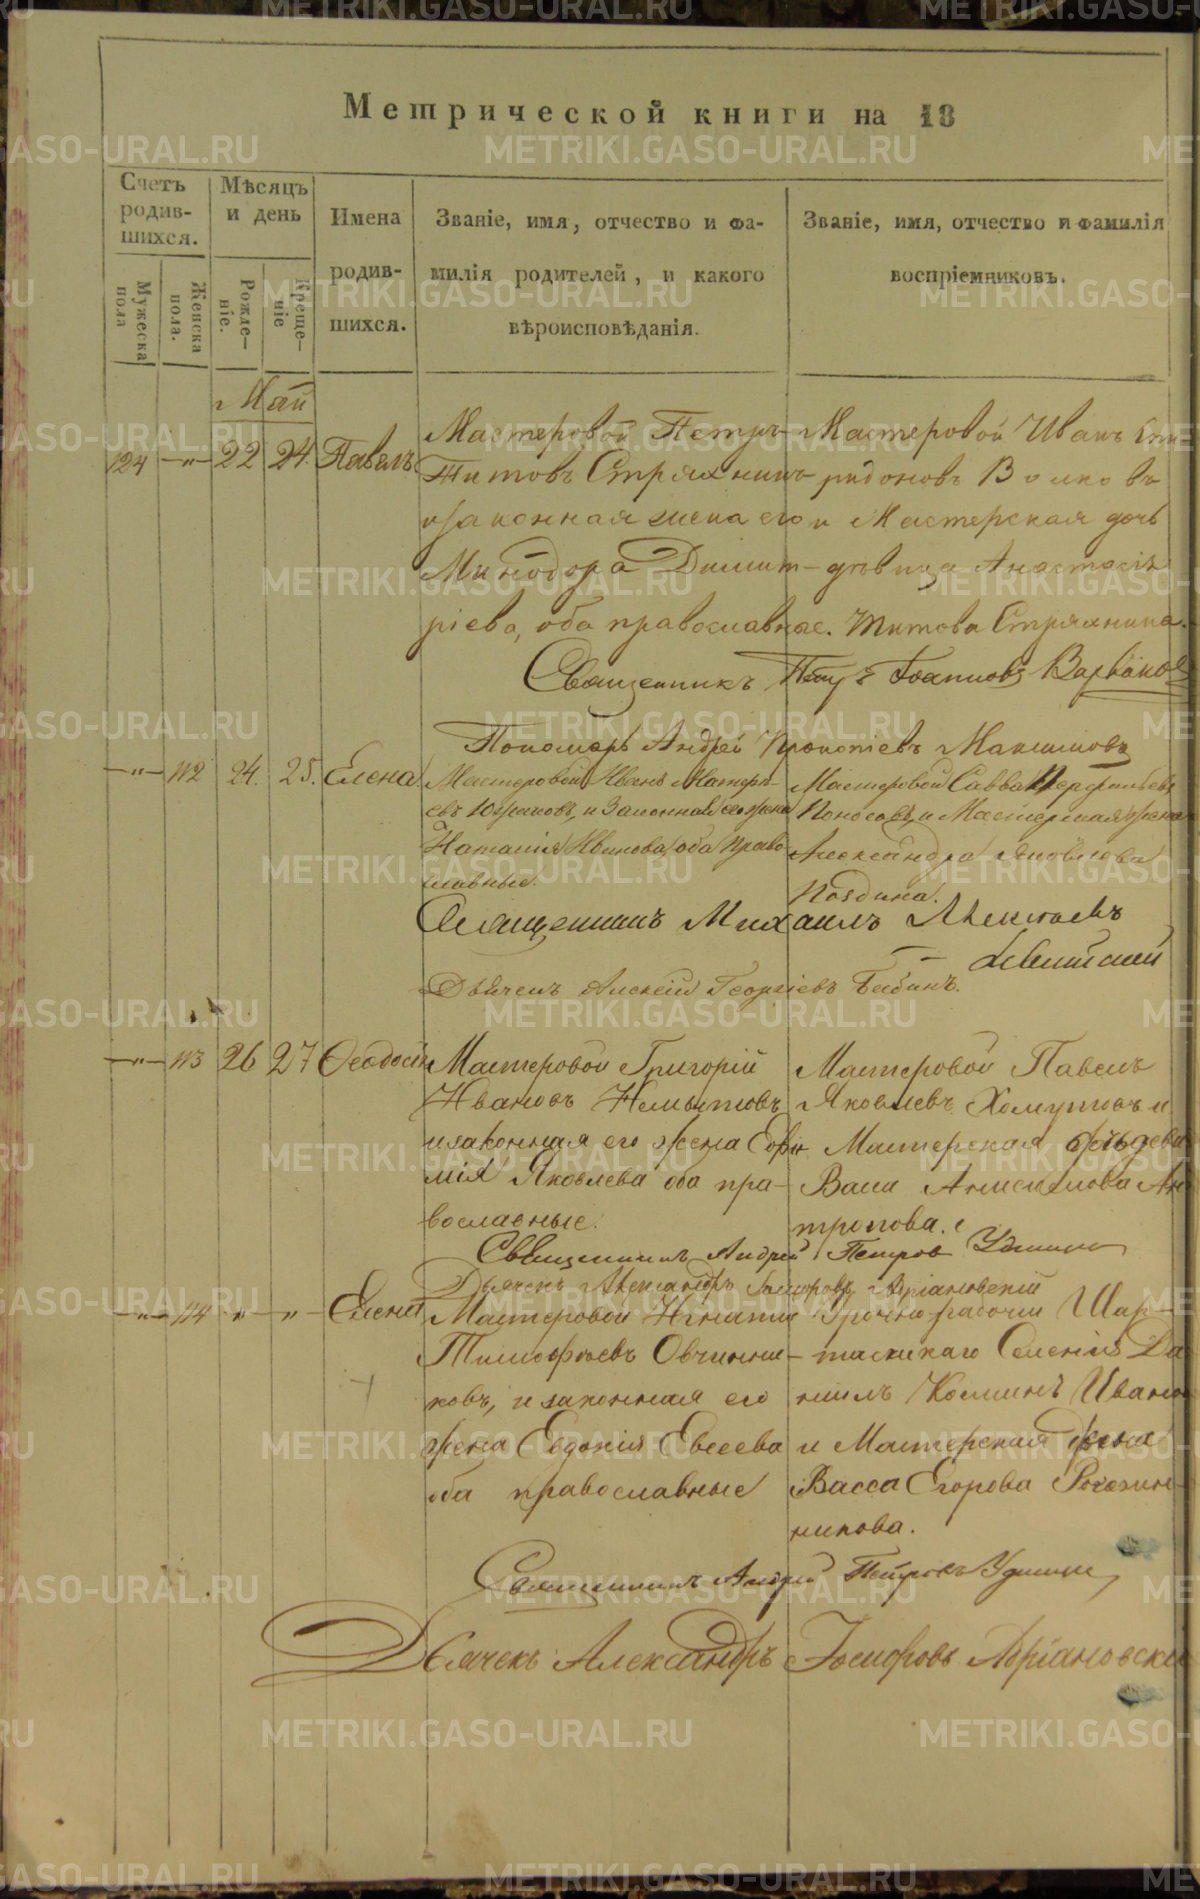 Метрической книги на 18
Счетъ родив-шихся.
Мѣсяцъ и день
Имена родив-шихся.
Званіе, имя, отчество и фа-
милія родителей, и какого
вѣроисповѣданія.
Званіе, имя, отчество и фамилія
воспріемниковъ.
Мужеска пола
Женска пола.
Рожде-ніе.
Креще-ніе
Май
124 —"— 22 24. Павелъ
Мастеровой Петръ
Титовъ Стряхнинъ
и законная жена его
Минодора Димит-
ріева, оба православные.
Мастеровой Иванъ Спи
ридоновъ Волковъ
и Мастерская дочь
дѣвица Анастасія
Титова Стряхнина.
Священникъ Петръ Іоанновъ
Пономарь Андрей Прокопіевъ Максимовъ
—"— 112 24. 25. Елена
Мастеровой Иванъ
евъ и Законная его жена
Наталія Иванова, оба Право
славные.
Мастеровой Савва Перфильевъ
и Мастерская жена
Александра Яковлева
Священникъ Михаилъ Алексѣевъ
Левитскій
Дьячекъ Алексій Георгіевъ Бабинъ.
—"— 113 26 27 Ѳеодосія
Мастеровой Григорій
Ивановъ
и законная его жена Евфи
мія Яковлева оба пра-
вославные.
Мастеровой Павелъ
Яковлевъ Хомутовъ и
Мастерская
Васи Анисимова Ан
тропова.
Священникъ Андрей Петровъ Удинцевъ
Дьячекъ Александръ Іосифовъ Адріановскій
—"— 114 —"— " — Елена
Мастеровой Игнатій
Тимофѣевъ Овчинни-
ковъ, и законная его
жена Евдокія Евсеева
оба православные
Урочнорабочій Шар-
ташскаго Селенія Да
ніилъ Косминъ Ивано
и Мастерская жена
Васса Егорова Рогозин-
никова.
Священникъ Андрей Петровъ Удинцевъ
Дьячекъ Александръ Іосифовъ Адріановскій
METRIKI.GASO-URAL.RU